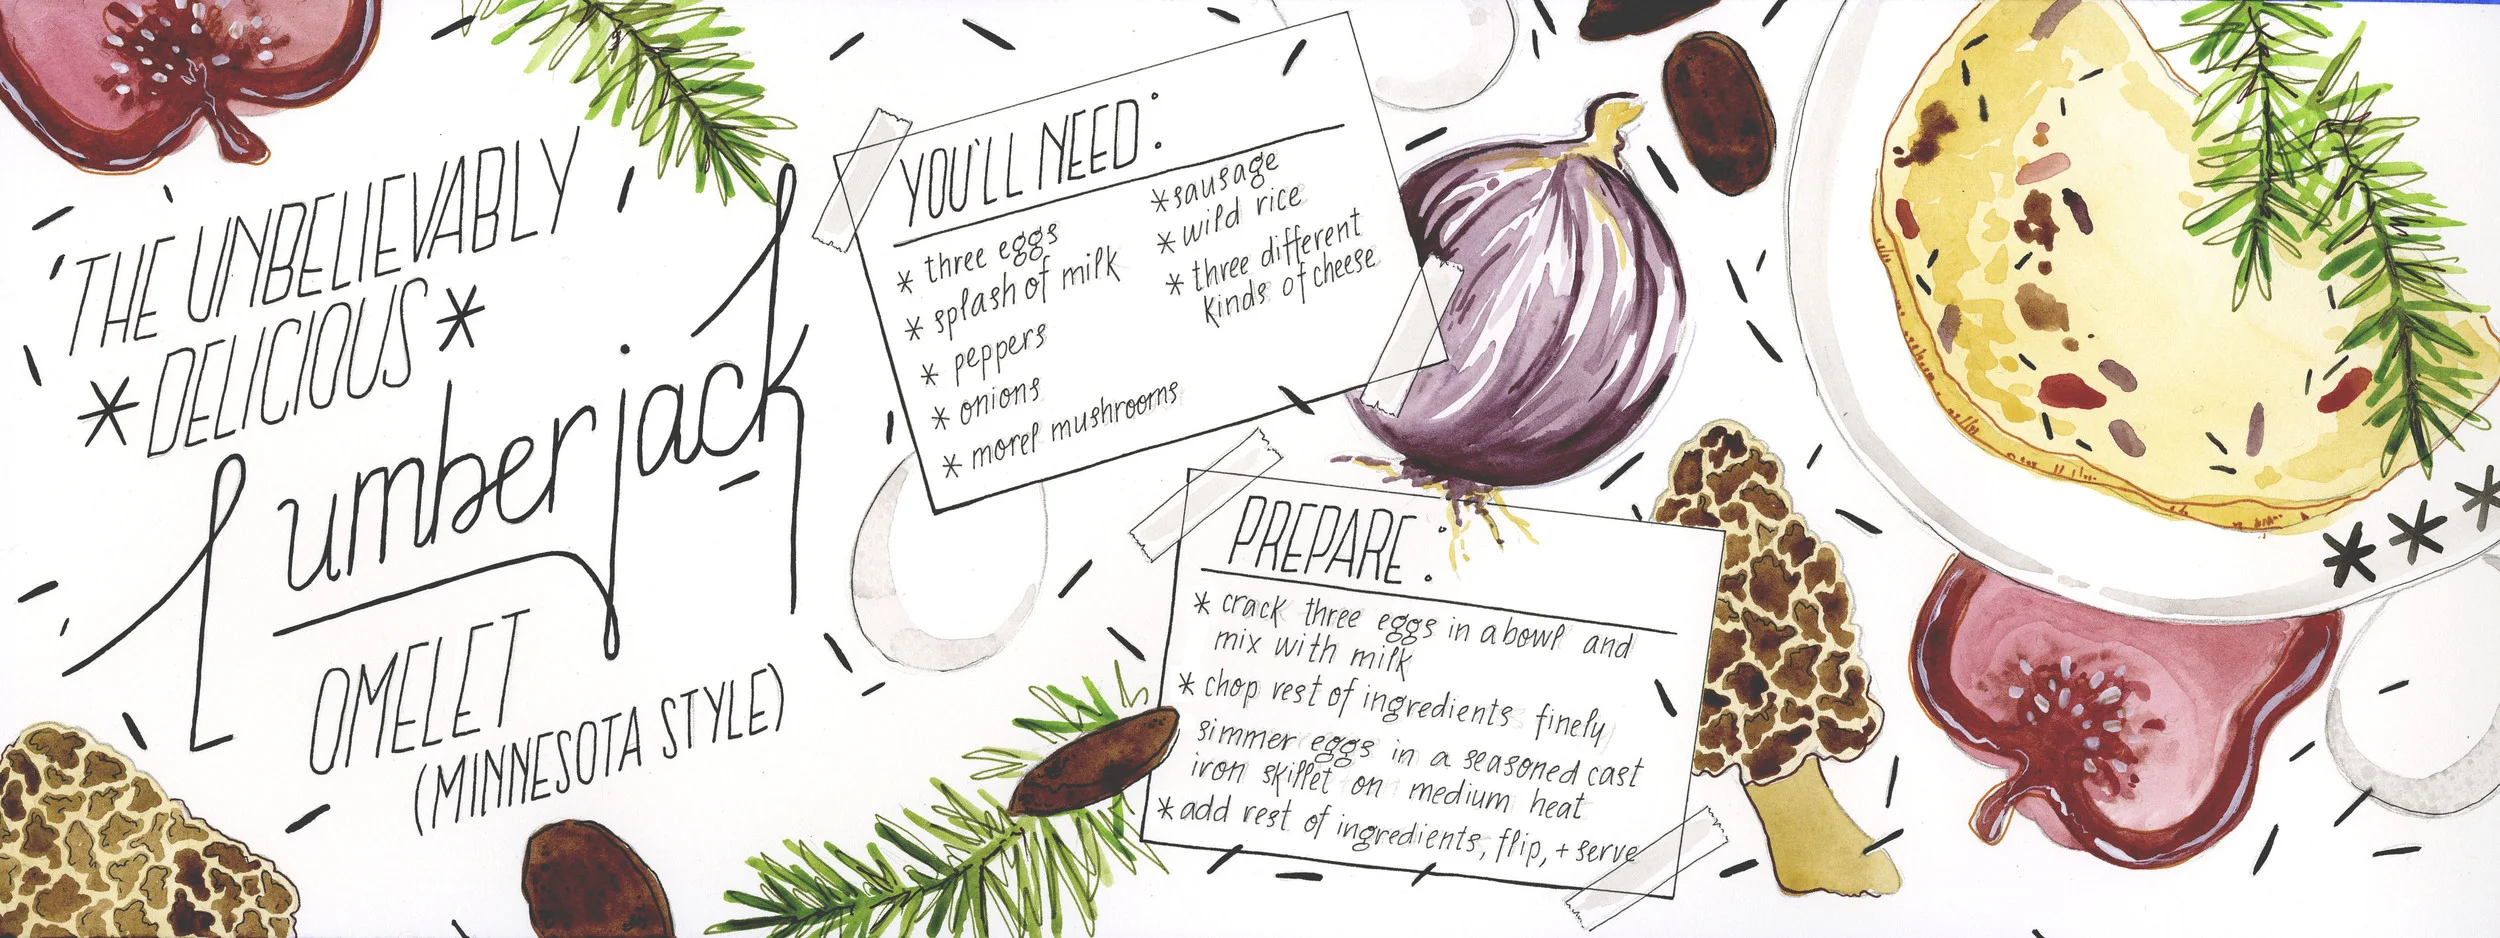 THE UNBELIEVABLY
*DELICIOUS*
Lumberjack
OMELET
(MINNESOTA STYLE)
YOU'LL NEED:
* three eggs
* splash of milk
* peppers
* onions
* morel mushrooms
* sausage
* wild rice
* three different
kinds of cheese
PREPARE:
* crack three eggs in a bowl and
mix with milk
* chop rest of ingredients finely
simmer eggs in a seasoned cast
iron skillet on medium heat
* add rest of ingredients, flip, + serve